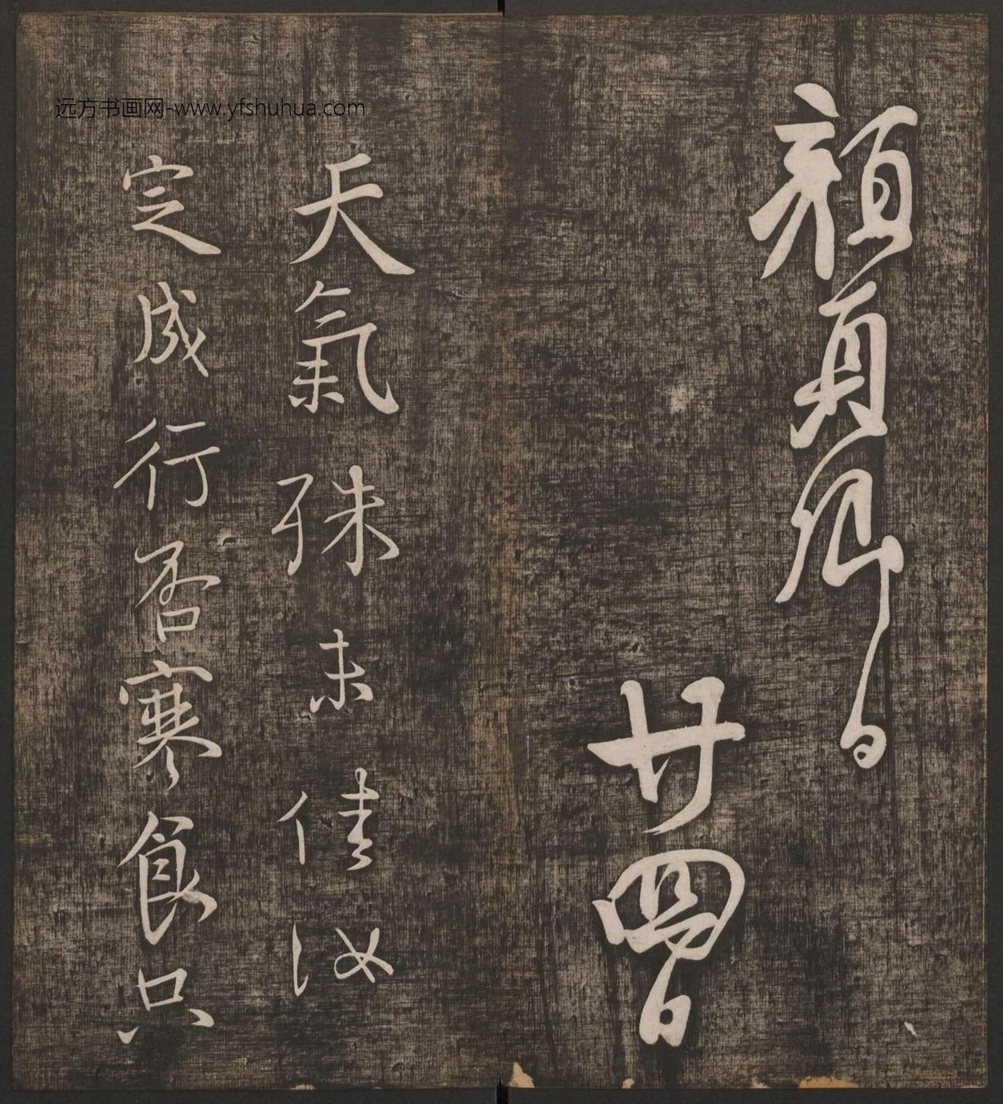 顔真卿白
廿四日
天氣殊未佳汝
定成行否寒食只
远方书画网-www.yfshuhua.com